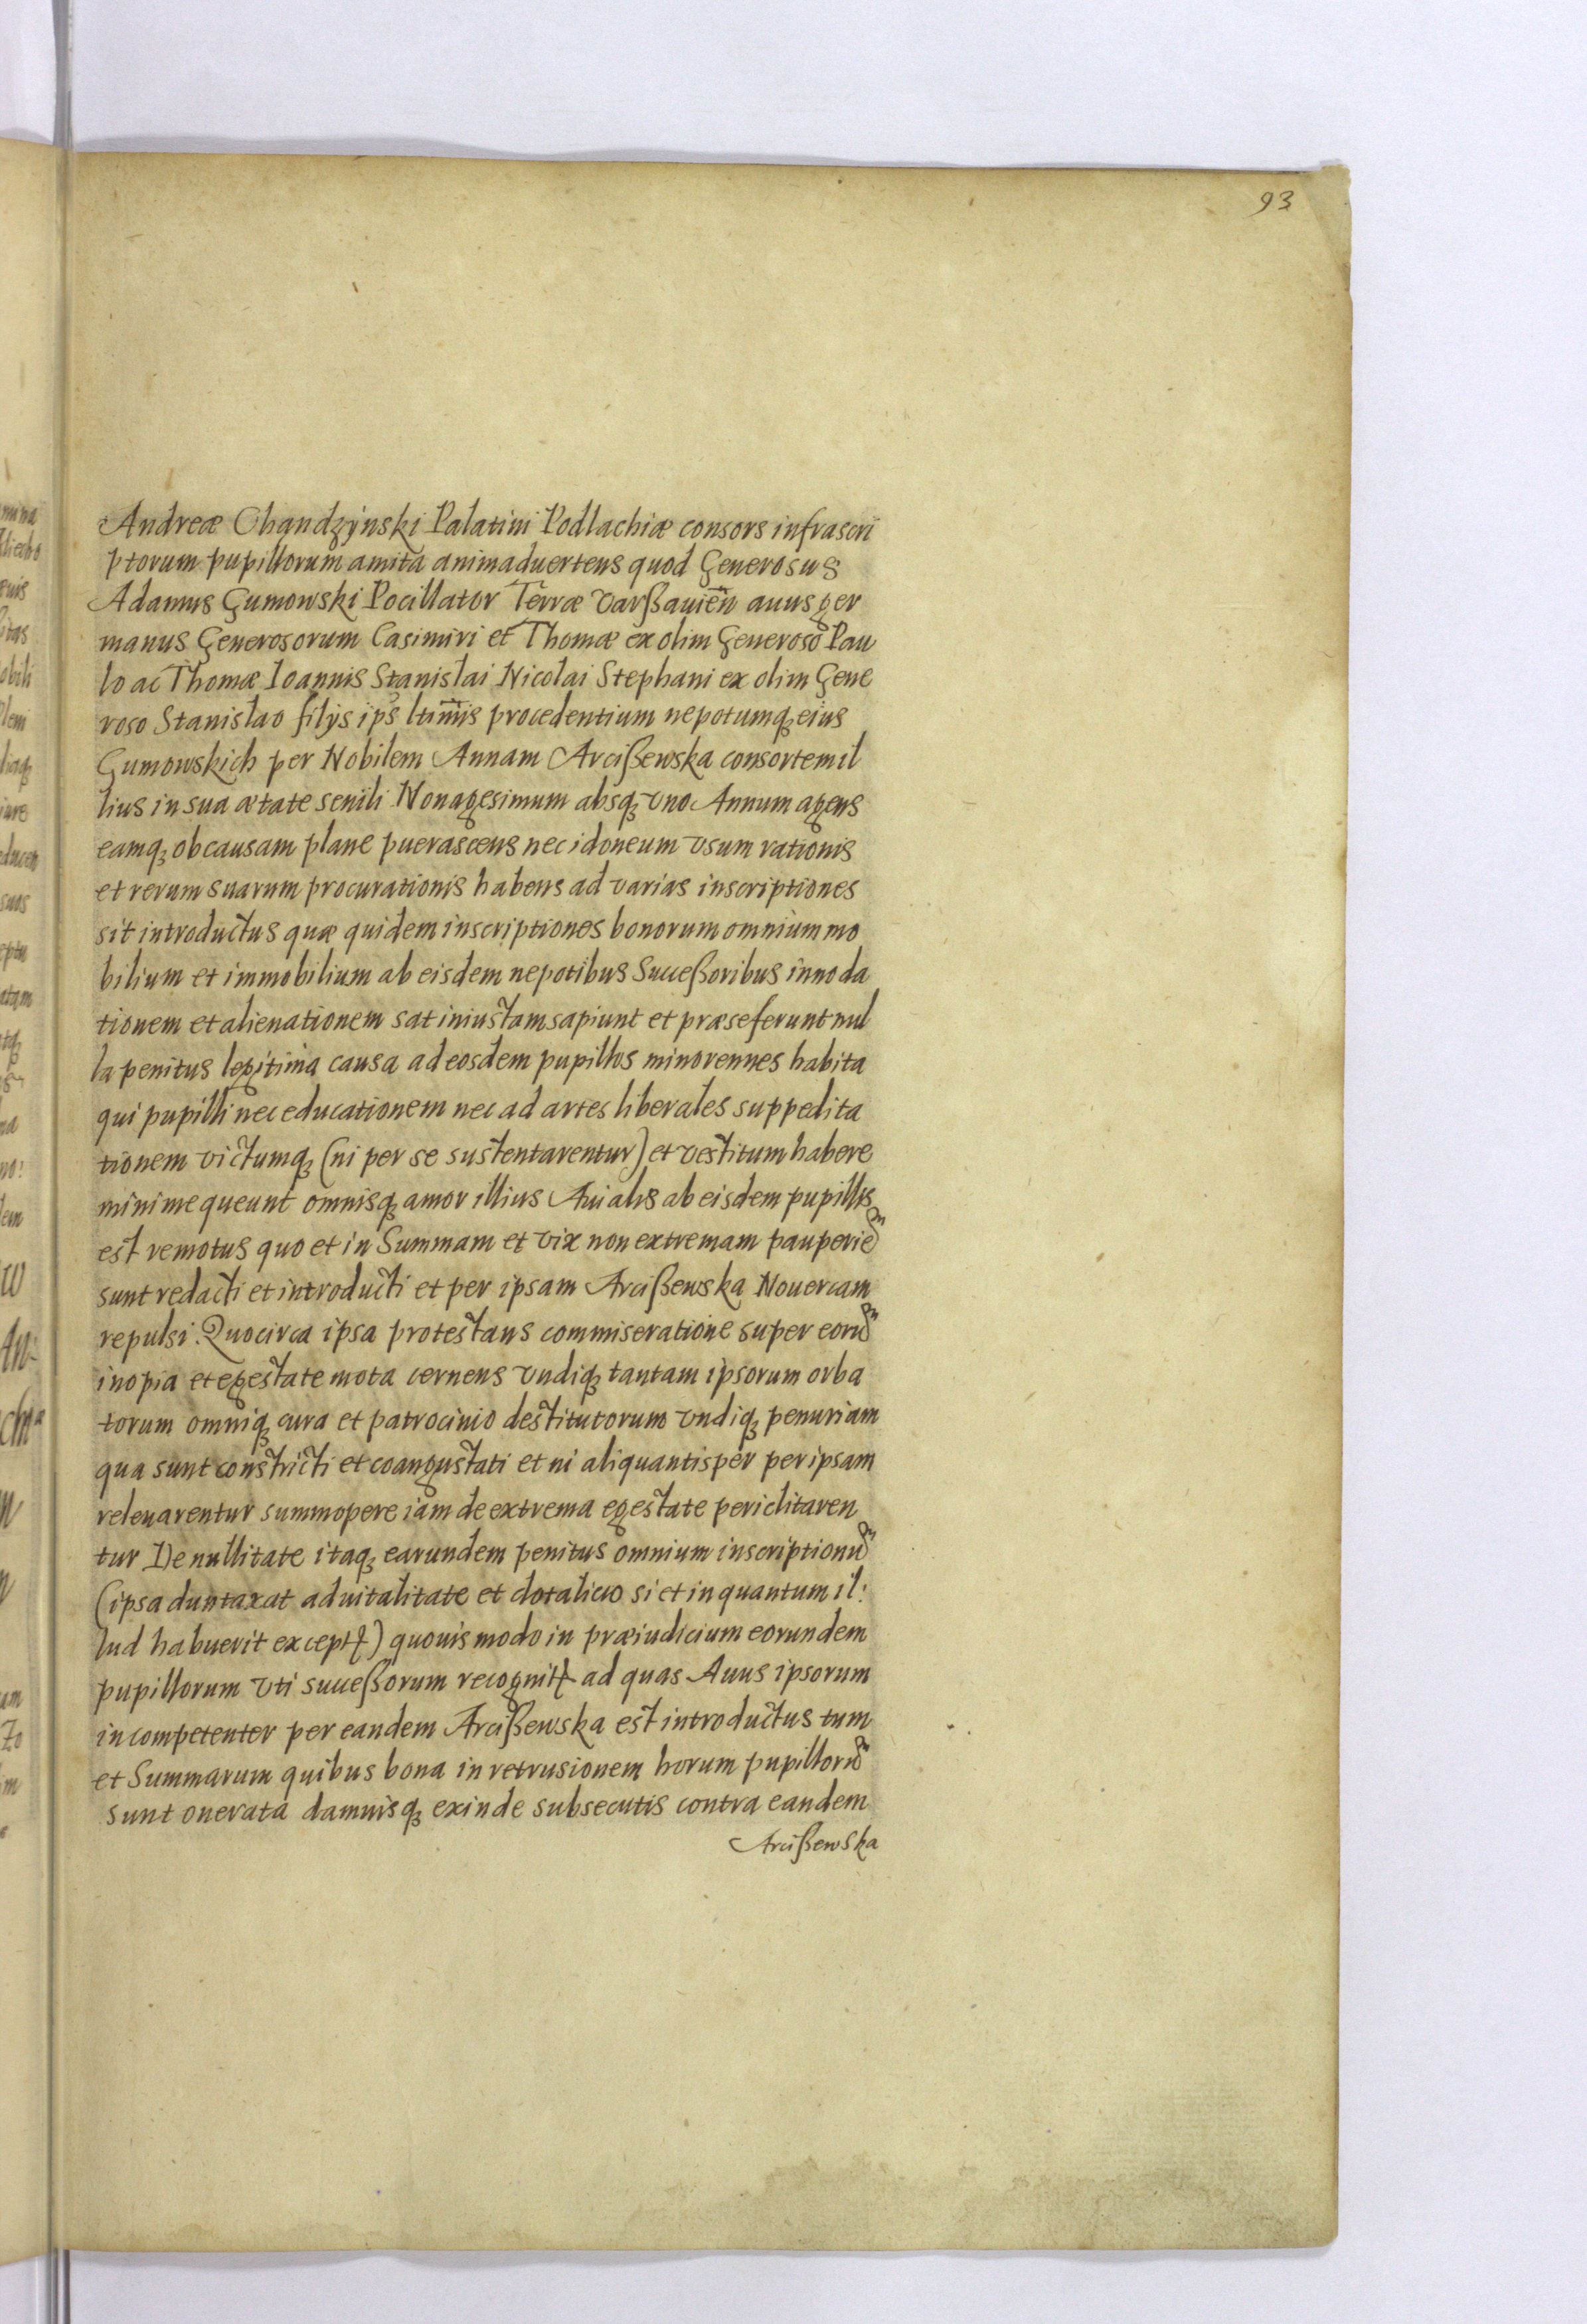 93
Andreæ Chądzynski Palatini Podlachiæ consors infrascri
ptorum pupillorum amita animaduertens quod Generosus
Adamus Gumowski Pocillator Terræ Varßauien̄ auus ger
manus Generosorum Casimiri et Thomæ ex olim Generoso Pau
lo ac Thomæ Ioannis Stanislai Nicolai Stephani ex olim Gene
roso Stanislao filijs ips ltimis procedentium nepotumq; eius
Gumowskich per Nobilem Annam Arcißewska consortem il
lius in sua ætate senili Nonagesimum absq; vno Annum agens
eamq; ob causam plane puerascens nec idoneum vsum rationis
et rerum suarum procurationis habens ad varias inscriptiones
sit introductus quæ quidem inscriptiones bonorum omnium mo
bilium et immobilium ab eisdem nepotibus Succeßoribus innoda
tionem et alienationem sat iniustam sapiunt et præseferunt nul
la penitus legitima causa ad eosdem pupillos minorennes habita
qui pupilli nec educationem nec ad artes liberales suppedita
tionem victumq; (ni per se sustentarentur) et vestitum habere
minime queunt omnisq; amor illius Auialis ab eisdem pupillis
est remotus quo et in Summam et vix non extremam pauperiē
sunt redacti et introducti et per ipsam Arcißewska Nouercam
repulsi. Quocirca ipsa protestans commiseratione super eorū
inopia et egestate mota cernens vndiq; tantam ipsorum orba
torum omniq; cura et patrocinio destitutorum vndiq; penuriam
qua sunt constricti et coangustati et ni aliquantisper per ipsam
releuarentur summopere iam de extrema egestate periclitaren
tur De nullitate itaq; earundem penitus omnium inscriptionū
(ipsa duntaxat aduitalitate et dotalicio si et in quantum il:
lud habuerit except) quouis modo in præiudicium eorundem
pupillorum vti succeßorum recognit ad quas Auus ipsorum
incompetenter per eandem Arcißewska est introductus tum
et Summarum quibus bona in retrusionem horum pupillorū
sunt onerata damnisq; exinde subsecutis contra eandem
Arcißewska